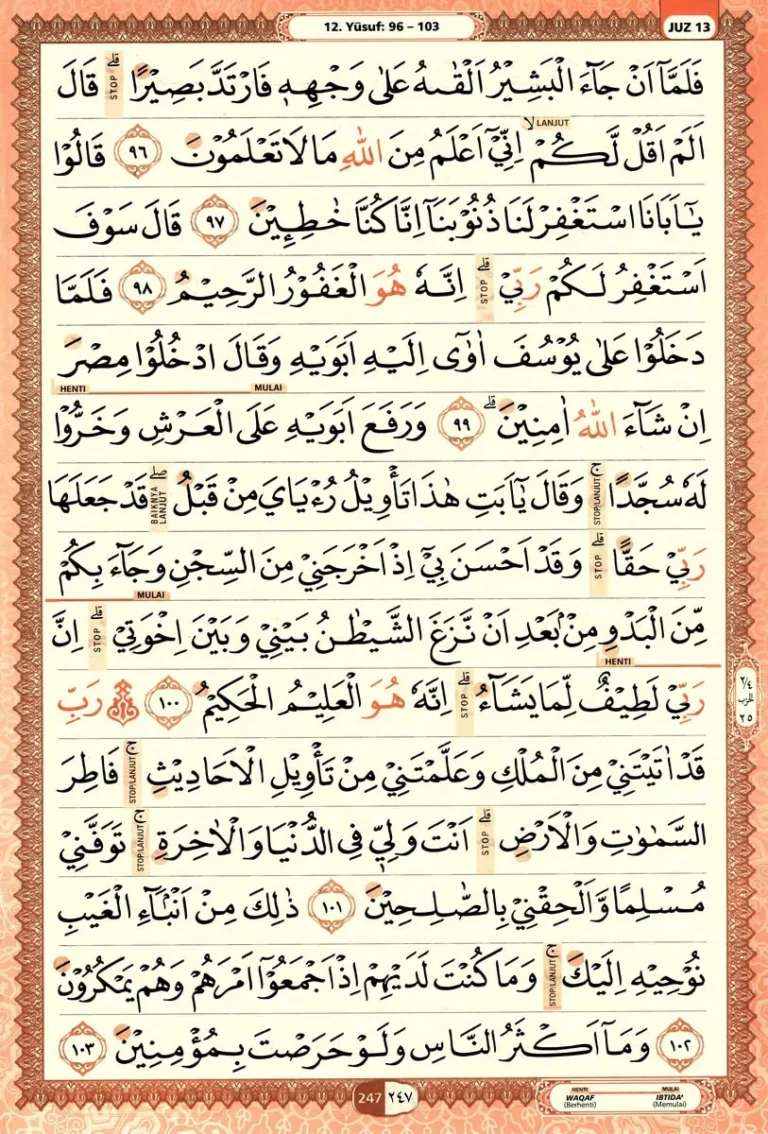 12. Yūsuf: 96 – 103
JUZ 13
فَلَمَّآ اَنْ جَاۤءَ الْبَشِيْرُ اَلْقٰىهُ عَلٰى وَجْهِهٖ فَارْتَدَّ بَصِيْرًاۗ STOP قَالَ
LANJUT
اَلَمْ اَقُلْ لَّكُمْ اِنِّيْٓ اَعْلَمُ مِنَ اللّٰهِ مَا لَا تَعْلَمُوْنَ ٩٦ قَالُوْا
يٰٓاَبَانَا اسْتَغْفِرْ لَنَا ذُنُوْبَنَآ اِنَّا كُنَّا خٰطِـِٕيْنَ ٩٧ قَالَ سَوْفَ
اَسْتَغْفِرُ لَكُمْ رَبِّيْۗ STOP اِنَّهٗ هُوَ الْغَفُوْرُ الرَّحِيْمُ ٩٨ فَلَمَّا
دَخَلُوْا عَلٰى يُوْسُفَ اٰوٰٓى اِلَيْهِ اَبَوَيْهِ وَقَالَ ادْخُلُوْا مِصْرَ
MULAI HENTI
اِنْ شَاۤءَ اللّٰهُ اٰمِنِيْنَۗ ٩٩ وَرَفَعَ اَبَوَيْهِ عَلَى الْعَرْشِ وَخَرُّوْا
لَهٗ سُجَّدًاۚ STOP/LANJUT وَقَالَ يٰٓاَبَتِ هٰذَا تَأْوِيْلُ رُءْيَايَ مِنْ قَبْلُۖ BAIKNYA LANJUT قَدْ جَعَلَهَا
رَبِّيْ حَقًّاۗ STOP وَقَدْ اَحْسَنَ بِيْٓ اِذْ اَخْرَجَنِيْ مِنَ السِّجْنِ وَجَاۤءَ بِكُمْ
MULAI
مِّنَ الْبَدْوِ مِنْۢ بَعْدِ اَنْ نَّزَغَ الشَّيْطٰنُ بَيْنِيْ وَبَيْنَ اِخْوَتِيْۗ STOP اِنَّ
HENTI
رَبِّيْ لَطِيْفٌ لِّمَا يَشَاۤءُۗ STOP اِنَّهٗ هُوَ الْعَلِيْمُ الْحَكِيْمُ ١٠٠ ۞ رَبِّ
قَدْ اٰتَيْتَنِيْ مِنَ الْمُلْكِ وَعَلَّمْتَنِيْ مِنْ تَأْوِيْلِ الْاَحَادِيْثِۚ STOP/LANJUT فَاطِرَ
السَّمٰوٰتِ وَالْاَرْضِۗ STOP اَنْتَ وَلِيّٖ فِى الدُّنْيَا وَالْاٰخِرَةِۚ STOP/LANJUT تَوَفَّنِيْ
مُسْلِمًا وَّاَلْحِقْنِيْ بِالصّٰلِحِيْنَ ١٠١ ذٰلِكَ مِنْ اَنْۢبَاۤءِ الْغَيْبِ
نُوْحِيْهِ اِلَيْكَۚ STOP/LANJUT وَمَا كُنْتَ لَدَيْهِمْ اِذْ اَجْمَعُوْٓا اَمْرَهُمْ وَهُمْ يَمْكُرُوْنَ
١٠٢ وَمَآ اَكْثَرُ النَّاسِ وَلَوْ حَرَصْتَ بِمُؤْمِنِيْنَ ١٠٣
٢/٤ الحزب ٢٥
247 ٢٤٧
HENTI MULAI
WAQAF IBTIDA'
(Berhenti) (Memulai)